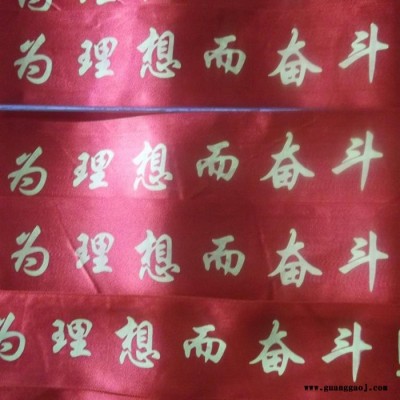 为理想而奋斗
为理想而奋斗
为理想而奋斗
为理想而奋斗
www.guanggaoj.com